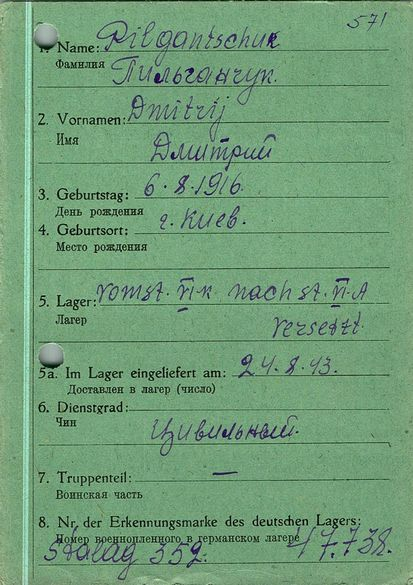 571
1. Name: Pilgantschuk
Фамилия Пильганчук.
2. Vornamen: Dmitrij
Имя Дмитрий
3. Geburtstag: 6.8.1916.
День рождения
4. Geburtsort: г. Киев.
Место рождения
5. Lager: vomst. VI-K nach st. VI-A
Лагер versetzt.
5a. Im Lager eingeliefert am: 24.8.43.
Доставлен в лагер (число)
6. Dienstgrad:
Чин Цивильный.
7. Truppenteil: —
Воинская часть
8. Nr. der Erkennungsmarke des deutschen Lagers:
Номер военнопленного в германском лагере 47.738.
Stalag 352.